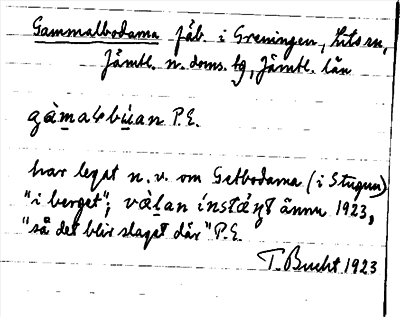 Gammalbodarna fäb. i Greningen, Lits sn,
Jämtl. n. doms. tg, Jämtl. län
gàmaɫbúan P.E.
har legat n. v. om Getbodarna (i Stugun)
"i berget"; vàlan
ännu 1923,
"så det blir slaget där" P.E.
T. Bucht 1923